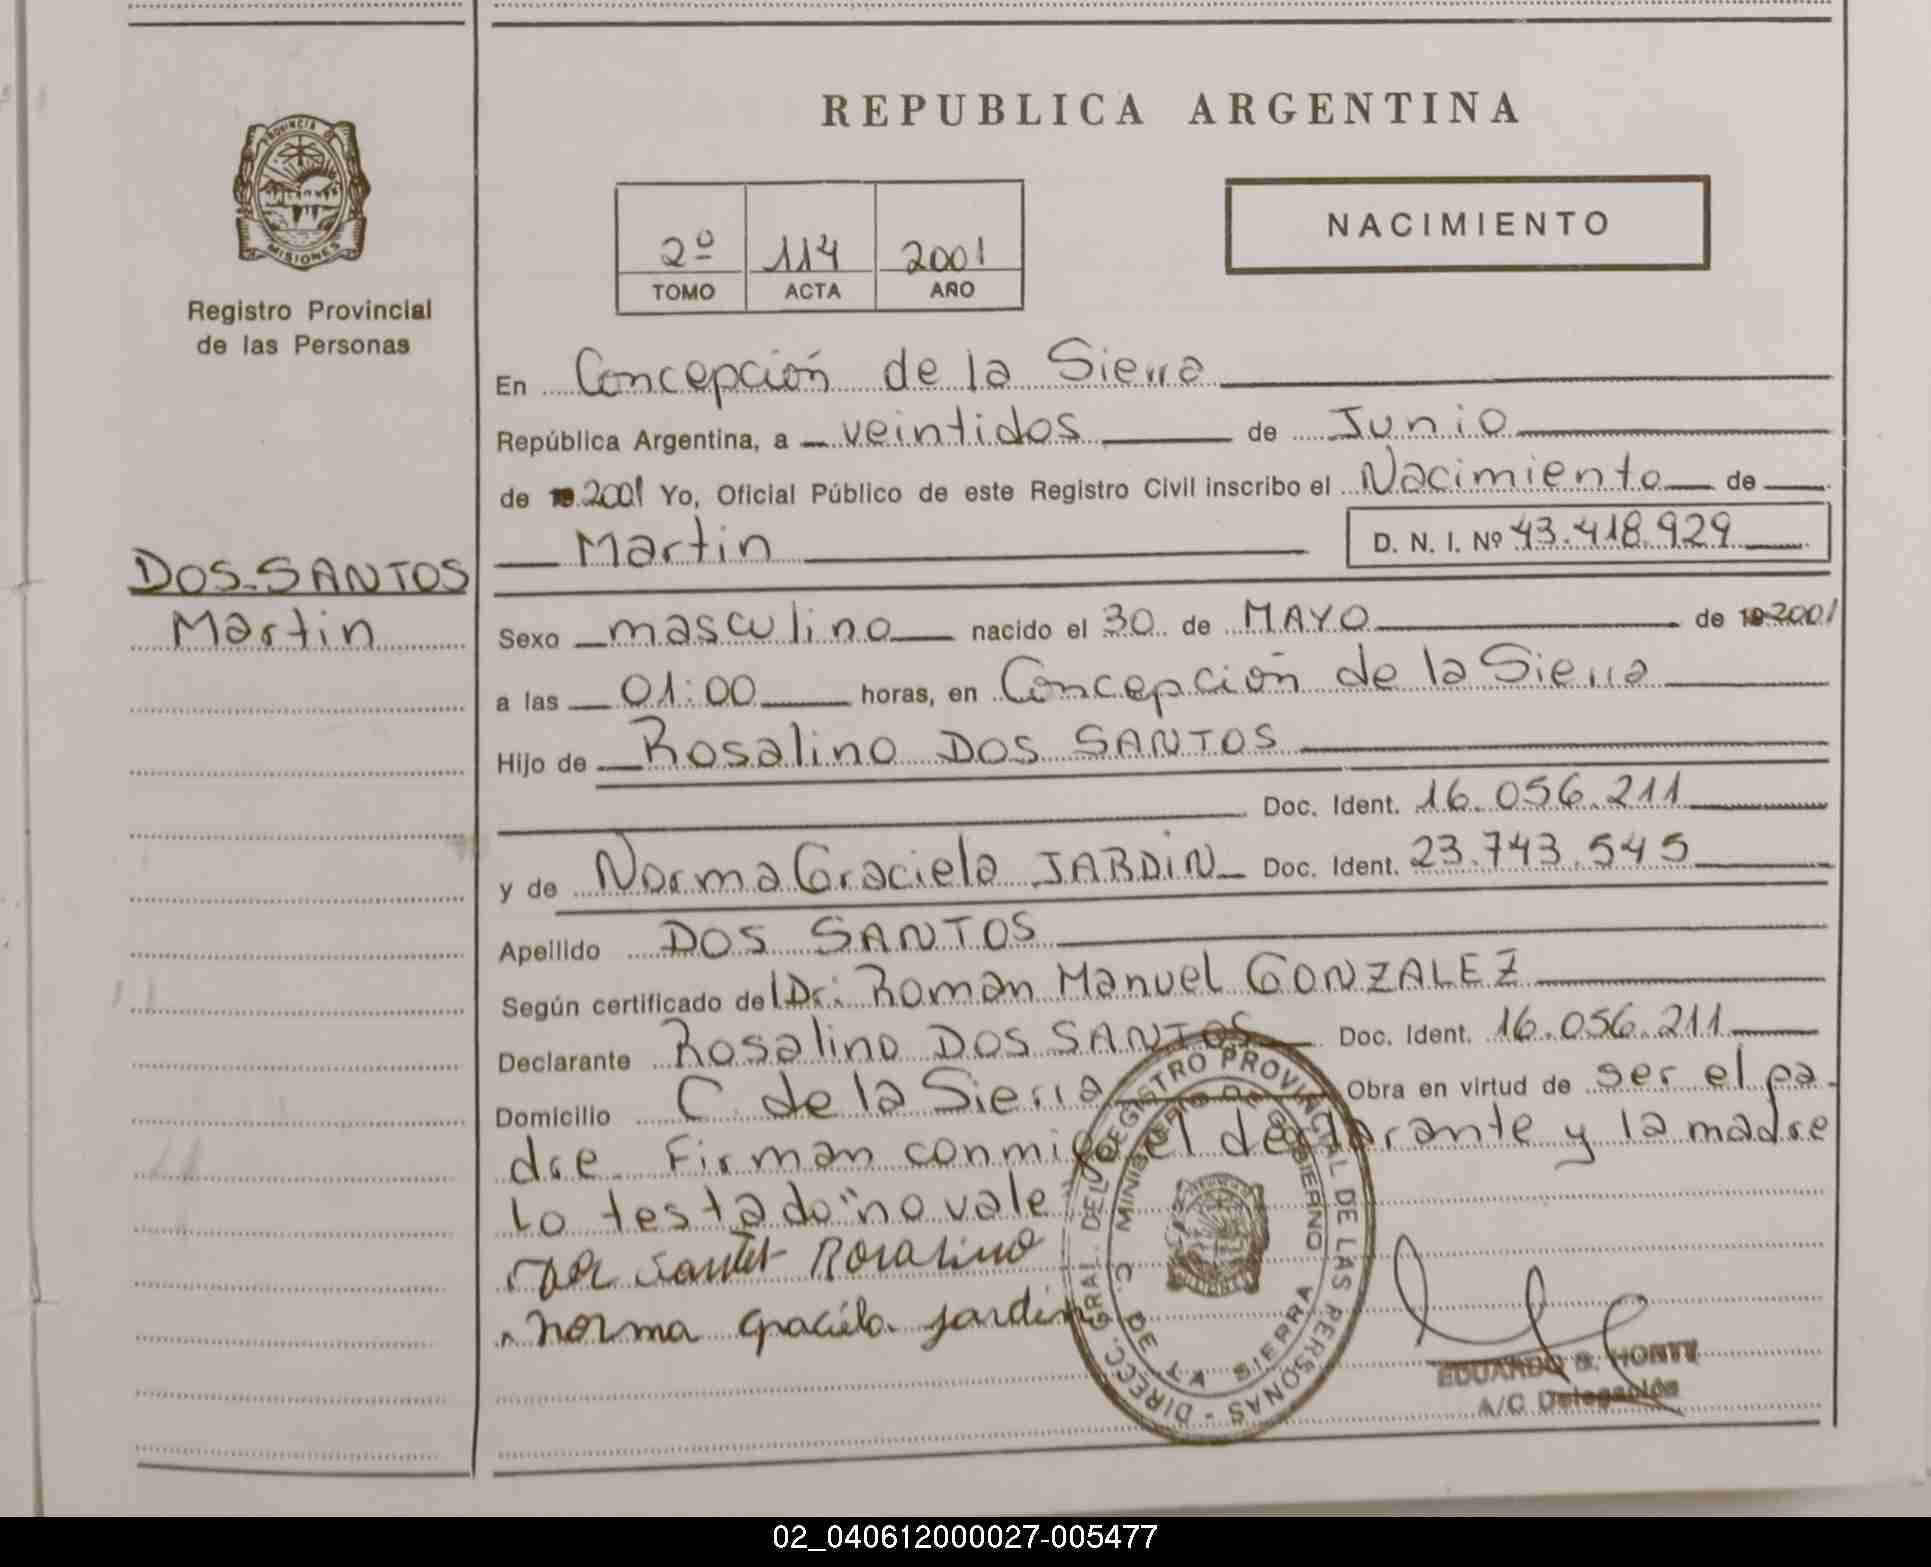 REPUBLICA ARGENTINA
PROVINCIA D
MISIONES
Registro Provincial
de las Personas
2º 114 2001
TOMO ACTA AÑO
NACIMIENTO
En Concepción de la Sierra
República Argentina, a veintidos de Junio
de 19 2001 Yo, Oficial Público de este Registro Civil inscribo el Nacimiento de
Martin D. N. I. Nº 43.418.929
DOS SANTOS
Martin
Sexo masculino nacido el 30 de MAYO de 19 2001
a las 01:00 horas, en Concepción de la Sierra
Hijo de Rosalino DOS SANTOS
Doc. Ident. 16.056.211
y de Norma Graciela JARDIN Doc. Ident. 23.743.545
Apellido DOS SANTOS
Según certificado del Dr: Roman Manuel GONZALEZ
Declarante Rosalino DOS SANTOS Doc. Ident. 16.056.211
Domicilio C. de la Sierra Obra en virtud de ser el pa-
dre Firman conmigo el declarante y la madre
Lo testado "no vale
Rosalino
norma graciela jardin
DIRECC. GRAL. DEL REGISTRO PROVINCIAL DE LAS PERSONAS -
MINISTERIO DE GOBIERNO
C. DE LA SIERRA
EDUARDO
A/C Delegación
02_040612000027-005477